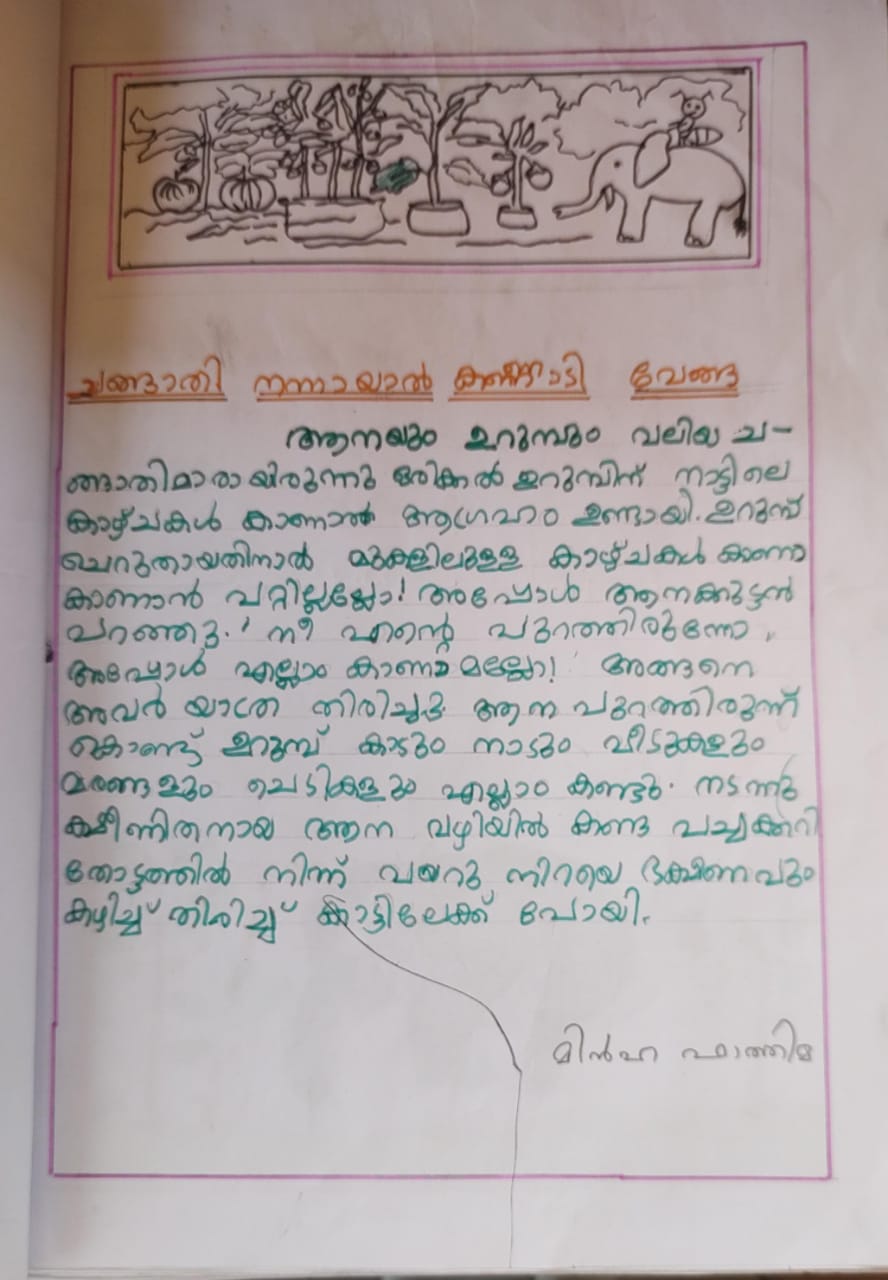 ചങ്ങാതി നന്നായാൽ കണ്ണാടി വേണ്ട
ആനയും ഉറുമ്പും വലിയ ച-
ങ്ങാതിമാരായിരുന്നു ഒരിക്കൽ ഉറുമ്പിന് നാട്ടിലെ
കാഴ്ചകൾ കാണാൻ ആഗ്രഹം ഉണ്ടായി. ഉറുമ്പ്
ചെറുതായതിനാൽ മുകളിലുള്ള കാഴ്ചകൾ കാണാ
കാണാൻ പറ്റില്ലല്ലോ! അപ്പോൾ ആനക്കുട്ടൻ
പറഞ്ഞു. ' നീ എന്റെ പുറത്തിരുന്നോ,
അപ്പോൾ എല്ലാം കാണാമല്ലോ! ' അങ്ങനെ
അവർ യാത്ര തിരിച്ചു. ആന പുറത്തിരുന്ന്
കൊണ്ട് ഉറുമ്പ് കാടും നാടും വീടുകളും
മരങ്ങളും ചെടികളും എല്ലാം കണ്ടു. നടന്നു
ക്ഷീണിതനായ ആന വഴിയിൽ കണ്ട പച്ചക്കറി
തോട്ടത്തിൽ നിന്ന് വയറു നിറയെ ഭക്ഷണവും
കഴിച്ച് തിരിച്ച് കാട്ടിലേക്ക് പോയി.
മിൻഹ ഫാത്തിമ